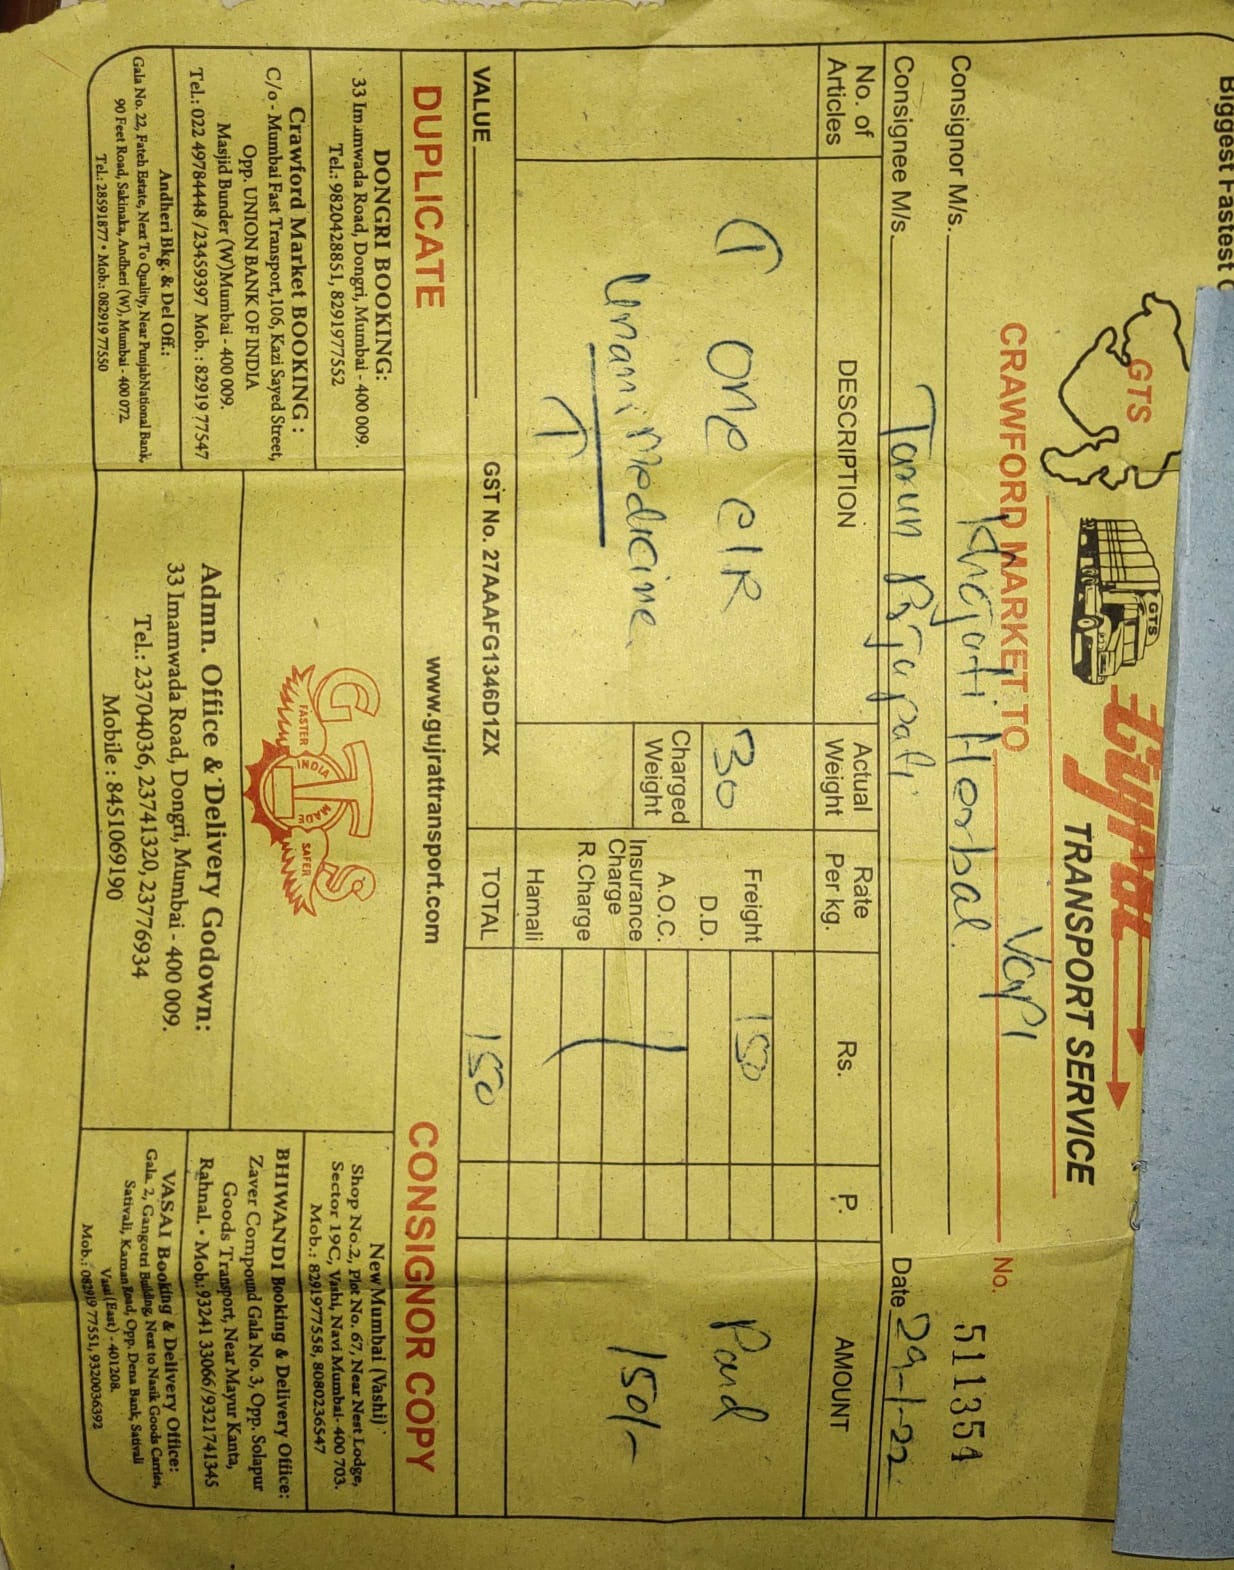 Biggest Fastest
GTS
GTS
Gujrat
TRANSPORT SERVICE
CRAWFORD MARKET TO Vapi No. 511354
Consignor M/s. Khajati Herbal.
Consignee M/s. Tarun Prjapati Date 29-1-22
No. of Articles DESCRIPTION Actual Weight Rate Per kg. Rs. P. AMOUNT
① one C/R 30 Freight 150 Paid
D.D.
Charged Weight A.O.C.
Unani medicine. Insurance Charge 150/-
R.Charge
Hamali
VALUE GST No. 27AAAFG1346D1ZX TOTAL 150
DUPLICATE www.gujrattransport.com CONSIGNOR COPY
DONGRI BOOKING:
33 Imamwada Road, Dongri, Mumbai - 400 009.
Tel.: 9820428851, 8291977552
Crawford Market BOOKING :
C/o - Mumbai Fast Transport,106, Kazi Sayed Street,
Opp. UNION BANK OF INDIA
Masjid Bunder (W)Mumbai - 400 009.
Tel.: 022 49784448 /23459397 Mob. : 82919 77547
Andheri Bkg. & Del Off.:
Gala No. 22, Fateh Estate, Next To Quality, Near Punjab National Bank,
90 Feet Road, Sakinaka, Andheri (W), Mumbai - 400 072.
Tel.: 28591877 • Mob.: 082919 77550
GTS
FASTER INDIA MADE SAFER
Admn. Office & Delivery Godown:
33 Imamwada Road, Dongri, Mumbai - 400 009.
Tel.: 23704036, 23741320, 23776934
Mobile : 8451069190
New Mumbai (Vashi)
Shop No.2, Plot No. 67, Near Nest Lodge,
Sector 19C, Vashi, Navi Mumbai- 400 703.
Mob.: 8291977558, 8080236547
BHIWANDI Booking & Delivery Office:
Zaver Compound Gala No. 3, Opp. Solapur
Goods Transport, Near Mayur Kanta,
Rahnal. • Mob.:93241 33066/9321741345
VASAI Booking & Delivery Office:
Gala. 2, Gangotri Building, Next to Nasik Goods Carries,
Sativali, Kaman Road, Opp. Dena Bank, Sativali
Vasai (East) - 401208.
Mob.: 082919 77551, 9320036392